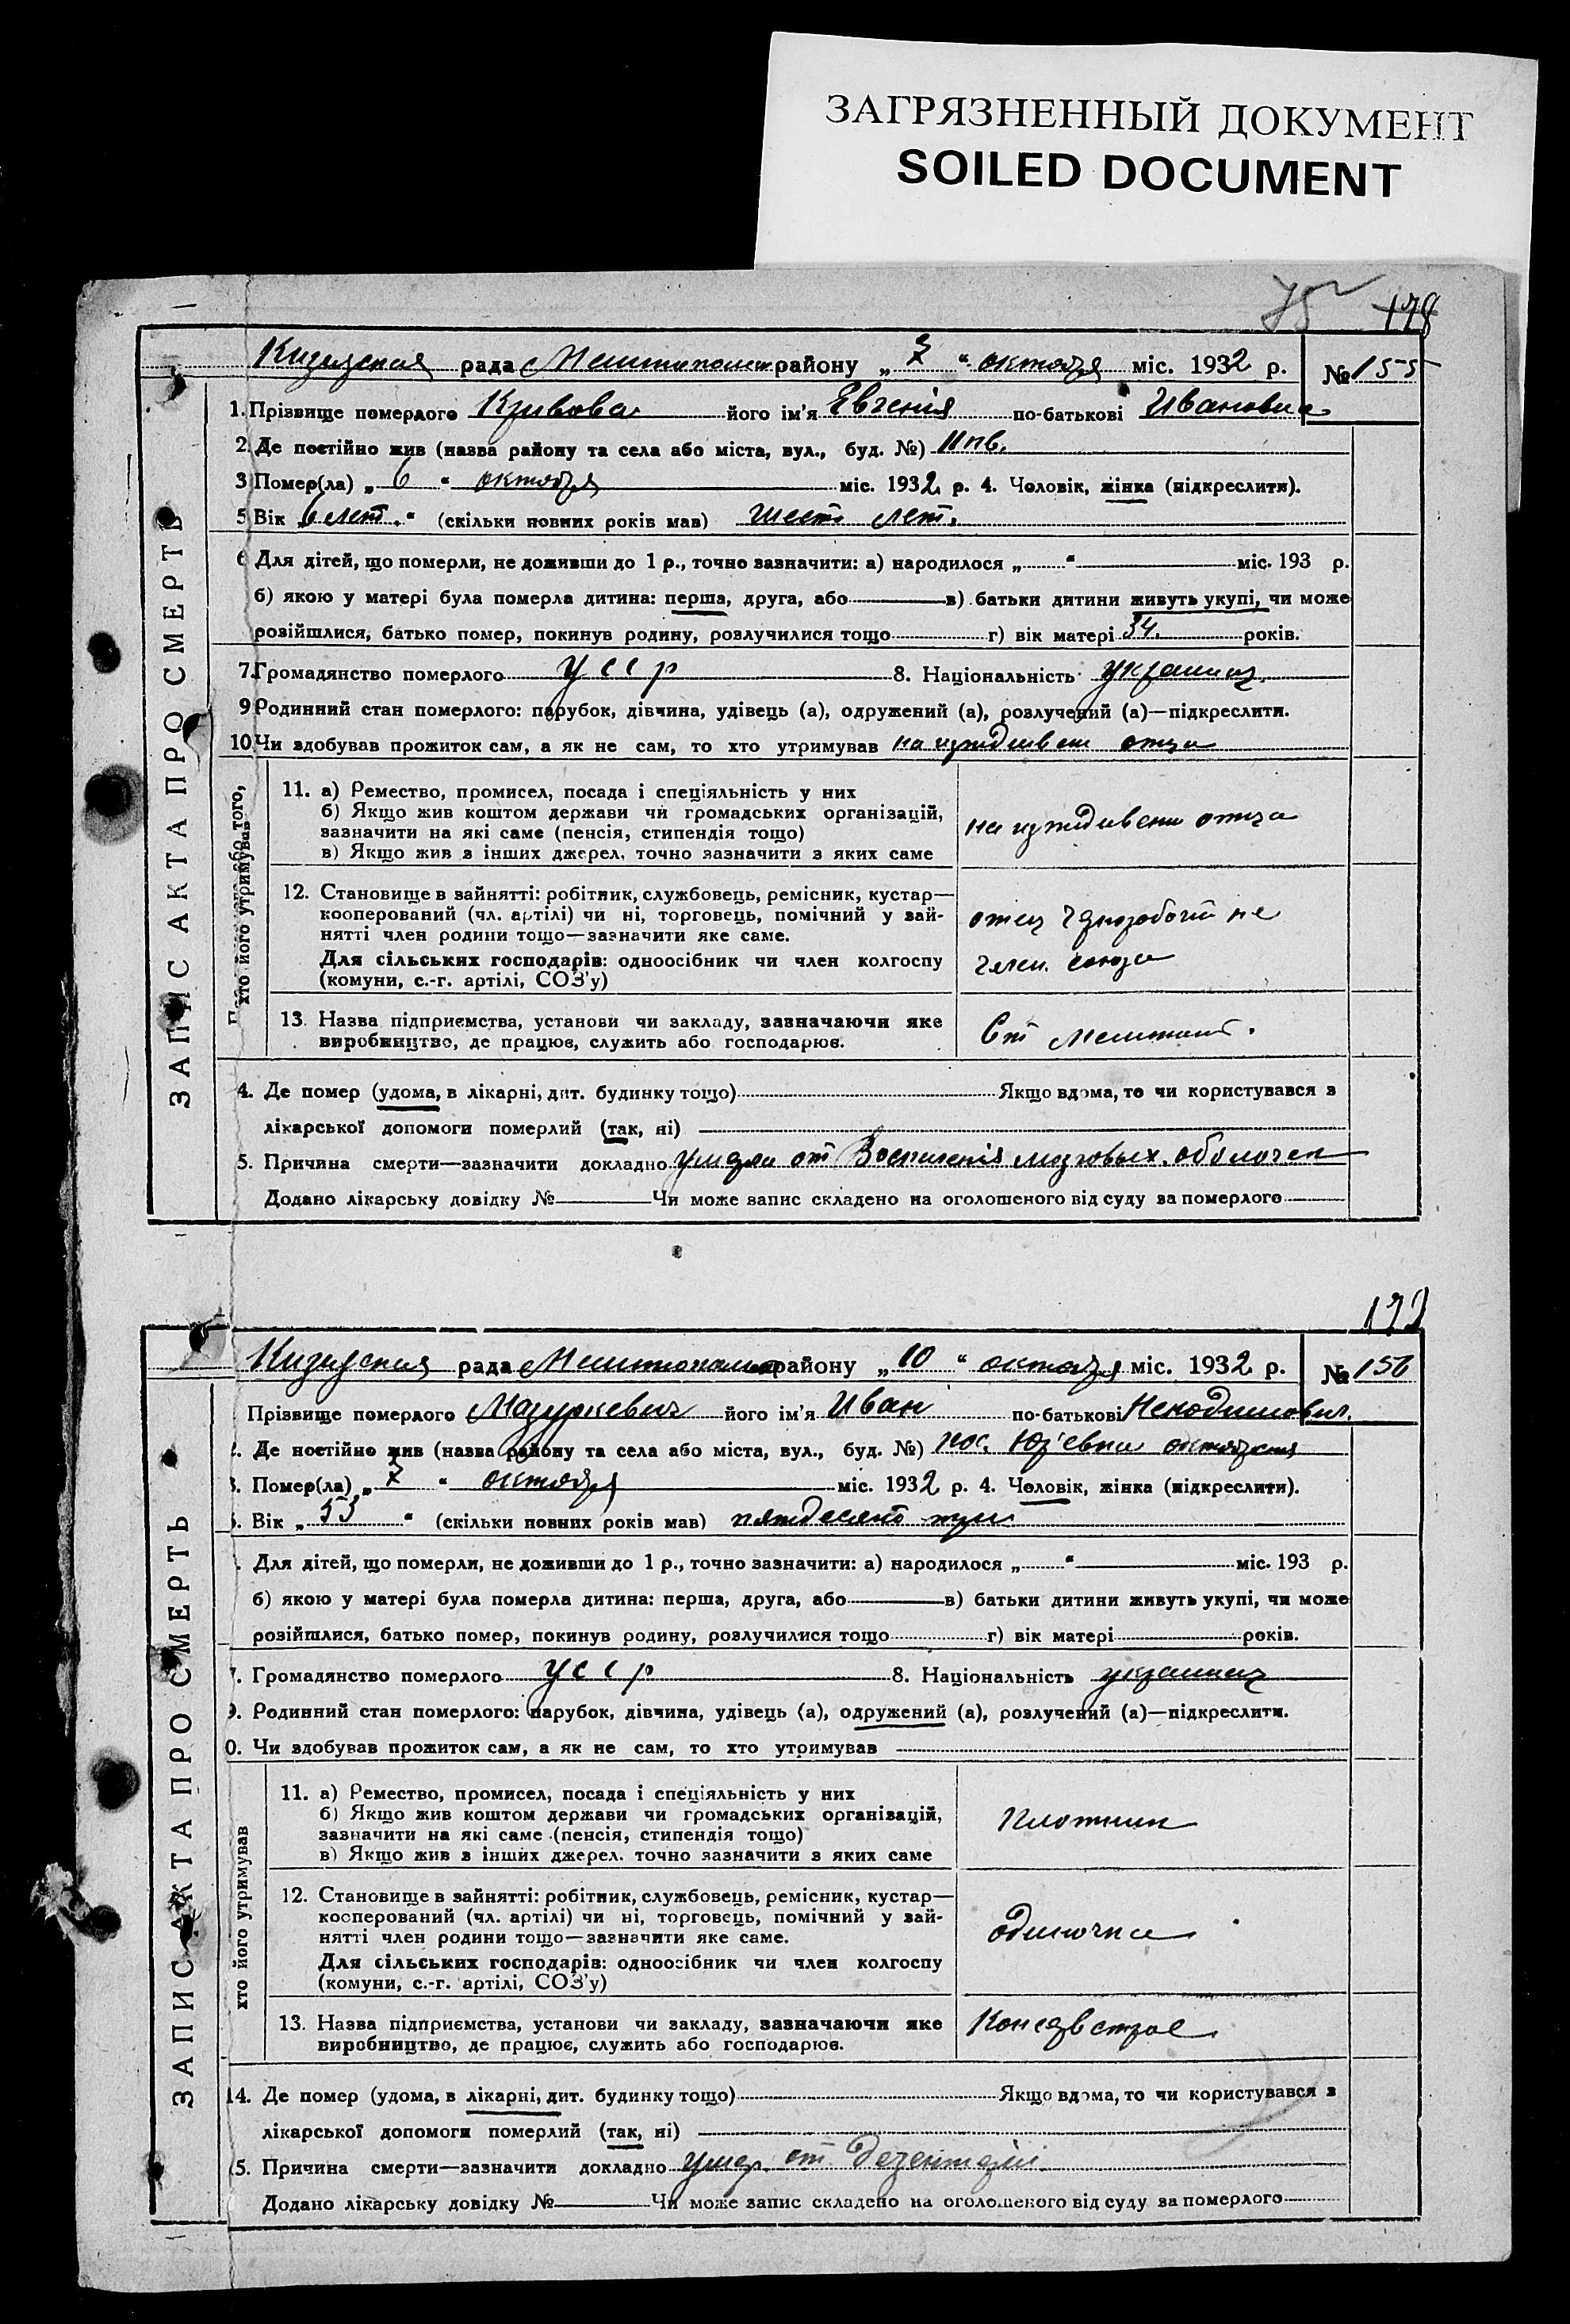 ЗАГРЯЗНЕННЫЙ ДОКУМЕНТ
SOILED DOCUMENT
75 178
Кизиярская рада Мелитополь району „7“ октября міс. 1932 р. № 155
1. Прізвище померлого Кривова його ім'я Евгенія по-батькові Ивановна
2. Де постійно жив (назва району та села або міста, вул., буд. №)
3 Помер(ла) „6“ октября міс. 1932 р. 4. Чоловік, жінка (підкреслити).
5 Вік „6 лет.“ (скільки повних років мав) шесть лет.
6 Для дітей, що померли, не доживши до 1 р., точно зазначити: а) народилося „ “ міс. 193 р.
б) якою у матері була померла дитина: перша, друга, або в) батьки дитини живуть укупі, чи може
розійшлися, батько помер, покинув родину, розлучилися тощо г) вік матері 34. років.
7. Громадянство померлого УССР 8. Національність украинец
9 Родинний стан померлого: парубок, дівчина, удівець (а), одружений (а), розлучений (а)—підкреслити.
10. Чи здобував прожиток сам, а як не сам, то хто утримував на иждивени отца
11. а) Ремество, промисел, посада і спеціяльність у них
б) Якщо жив коштом держави чи громадських організацій,
зазначити на які саме (пенсія, стипендія тощо)
в) Якщо жив з інших джерел, точно зазначити з яких саме
на иждивени отца
12. Становище в зайнятті: робітник, службовець, ремісник, кустар—
кооперований (чл. артілі) чи ні, торговець, помічний у зай-
нятті член родини тощо—зазначити яке саме.
Для сільських господарів: одноосібник чи член колгоспу
(комуни, с.-г. артілі, СОЗ'у)
отец Чернорабочий не
член. союза
13. Назва підприємства, установи чи закладу, зазначаючи яке
виробництво, де працює, служить або господарює.
Ст Мелитоп.
хто його утримував
4. Де помер (удома, в лікарні, дит. будинку тощо) Якщо вдома, то чи користувався з
лікарської допомоги померлий (так, ні)
5. Причина смерти—зазначити докладно умерла от Воспаленія мозговых оболочек
Додано лікарську довідку № Чи може запис складено на оголошеного від суду за померлого
ЗАПИС АКТА ПРО СМЕРТЬ
Кизиярская рада Мелитополь району „10“ октября міс. 1932 р. № 156
Прізвище померлого Мазуркевич його ім'я Иван по-батькові
2. Де постійно жив (назва району та села або міста, вул., буд. №) пос. Юр'евка октябрская
3. Помер(ла) „7“ октября міс. 1932 р. 4. Чоловік, жінка (підкреслити).
5. Вік „53“ (скільки повних років мав) пятдесят три
Для дітей, що померли, не доживши до 1 р., точно зазначити: а) народилося „ “ міс. 193 р.
б) якою у матері була померла дитина: перша, друга, або в) батьки дитини живуть укупі, чи може
розійшлися, батько помер, покинув родину, розлучилися тощо г) вік матері років.
7. Громадянство померлого УССР 8. Національність украинец
9. Родинний стан померлого: парубок, дівчина, удівець (а), одружений (а), розлучений (а)—підкреслити.
0. Чи здобував прожиток сам, а як не сам, то хто утримував
11. а) Ремество, промисел, посада і спеціяльність у них
б) Якщо жив коштом держави чи громадських організацій,
зазначити на які саме (пенсія, стипендія тощо)
в) Якщо жив з інших джерел. точно зазначити з яких саме
плотник
12. Становище в зайнятті: робітник, службовець, ремісник, кустар—
кооперований (чл. артілі) чи ні, торговець, помічний у зай-
нятті член родини тощо—зазначити яке саме.
Для сільських господарів: одноосібник чи член колгоспу
(комуни, с.-г. артілі, СОЗ'у)
одиночка
13. Назва підприємства, установи чи закладу, зазначаючи яке
виробництво, де працює, служить або господарює.
Консервстрое
хто його утримував
14. Де помер (удома, в лікарні, дит. будинку тощо) Якщо вдома, то чи користувався з
лікарської допомоги померлий (так, ні)
15. Причина смерти—зазначити докладно умер. от дезентерии
Додано лікарську довідку № Чи може запис складено на оголошеного від суду за померлого
ЗАПИС АКТА ПРО СМЕРТЬ